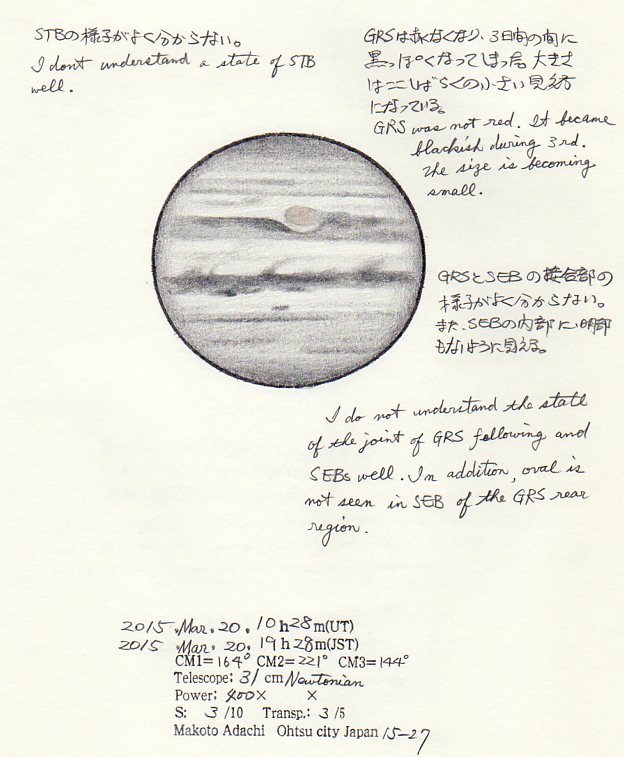 STBの様子がよく分からない。
I don't understand a state of STB
well.
GRSは赤くなくなり、3日間の間に
黒っぽくなってしまった 大きさ
はここしばらくの小さい見え方
になっている。
GRS was not red. It became
blackish during 3rd.
The size is becoming
small.
GRSとSEBの接合部の
様子がよく分からない。
また、SEBの内部に明部
もないように見える。
I do not understand the state
of the joint of GRS following and
SEBs well. In addition, oval is
not seen in SEB of the GRS rear
region.
2015 Mar. 20. 10h28m(UT)
2015 Mar. 20. 19h28m(JST)
CM1=164° CM2=221° CM3=144°
Telescope: 31 cm Newtonian
Power: 400× ×
S: 3/10 Transp.: 3/5
Makoto Adachi Ohtsu city Japan 15-27